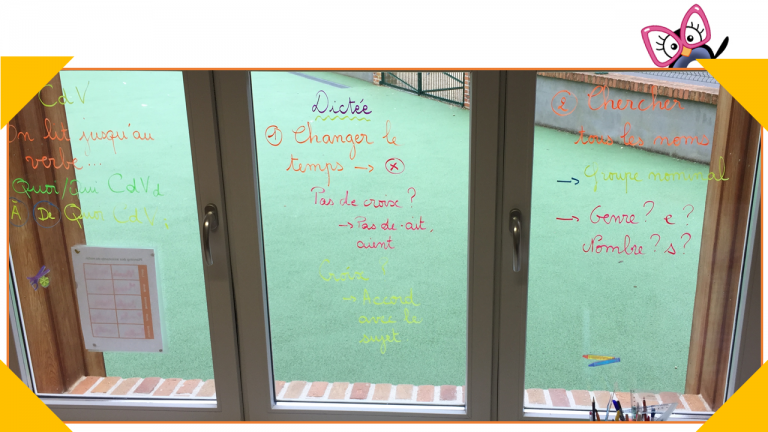 CdV
On lit jusqu'au
verbe...
Quoi/Qui CdVd
À De Quoi CdV
Dictée
① Changer le
temps → ⓧ
Pas de croix ?
→ Pas de -ait,
aient
Croix ?
→ Accord
avec le
sujet
② Chercher
tous les noms
→ Groupe nominal
→ Genre ? e ?
Nombre ? s ?